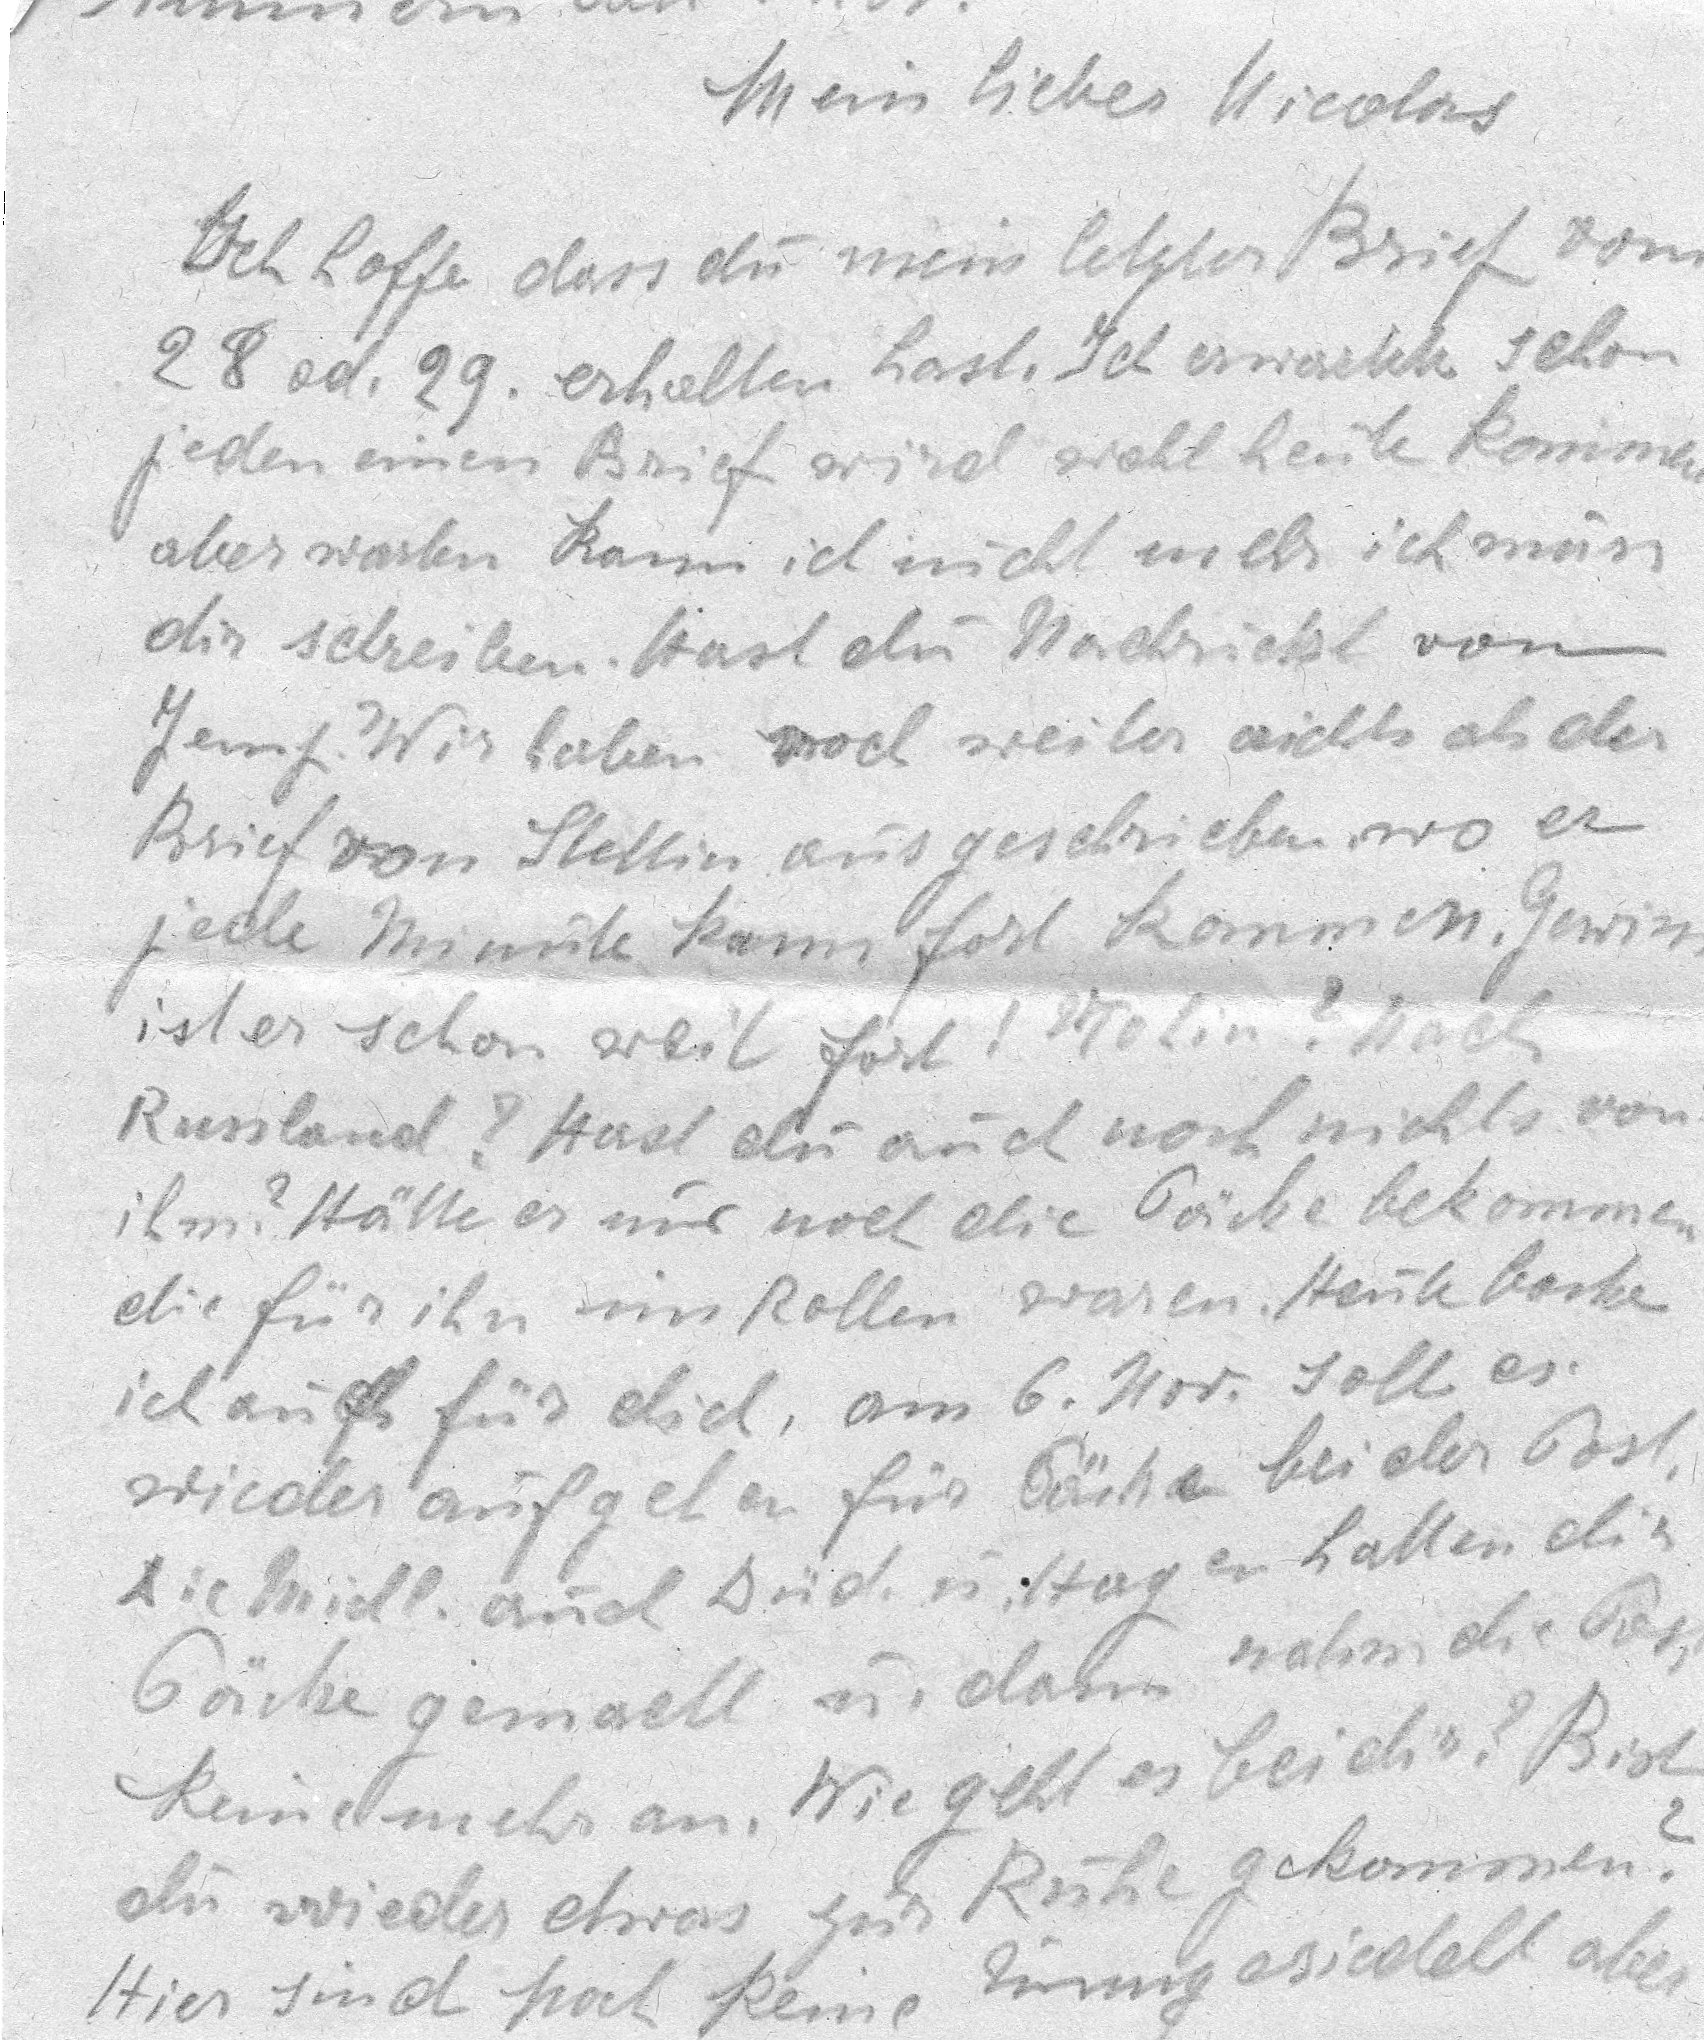 Mein lieber Nicolas
Ich hoffe dass du mein letzter Brief vom
28 od. 29. erhalten hast. Ich erwartete schon
jeden einen Brief wird wohl heute kommen
aber warten kann ich nicht mehr ich muss
dir schreiben. Hast du Nachricht von
Jemp? Wir haben noch weiter nichts als der
Brief von Stettin aus geschrieben wo er
jede Minute kann fort kommen. Gewiss
ist er schon weit fort! Wohin? Nach
Russland? Hast du auch noch nichts von
ihm? Hätte er nur noch die Päcke bekommen
die für ihn im Rollen waren. Heute backe
ich auch für dich, am 6. Nov. soll es
wieder aufgehen für Päcke bei der Post.
Die auch Düd. u. Hagen hatten dir
Päcke gemacht u. dann nahm die Post
keine mehr an. Wie geht es bei dir? Bist
du wieder etwas zur Ruhe gekommen?
Hier sind noch keine aber